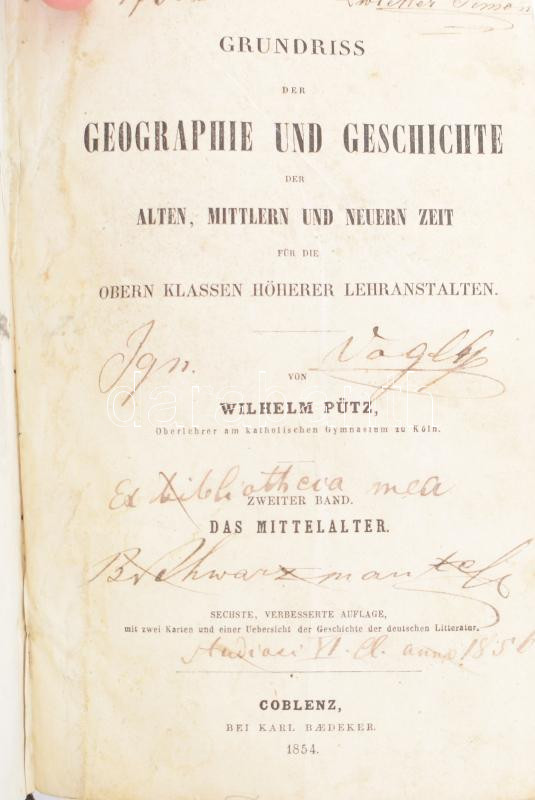 Simon
GRUNDRISS
DER
GEOGRAPHIE UND GESCHICHTE
DER
ALTEN, MITTLERN UND NEUERN ZEIT
FÜR DIE
OBERN KLASSEN HÖHERER LEHRANSTALTEN.
Ign. Vogly
VON
WILHELM PÜTZ,
Oberlehrer am katholischen Gymnasium zu Köln.
Ex bibliotheca mea
ZWEITER BAND.
DAS MITTELALTER.
B. Schwarzmantel
SECHSTE, VERBESSERTE AUFLAGE,
mit zwei Karten und einer Uebersicht der Geschichte der deutschen Litteratur.
Studiosi VI. Cl. anno 1856
COBLENZ,
BEI KARL BÆDEKER.
1854.